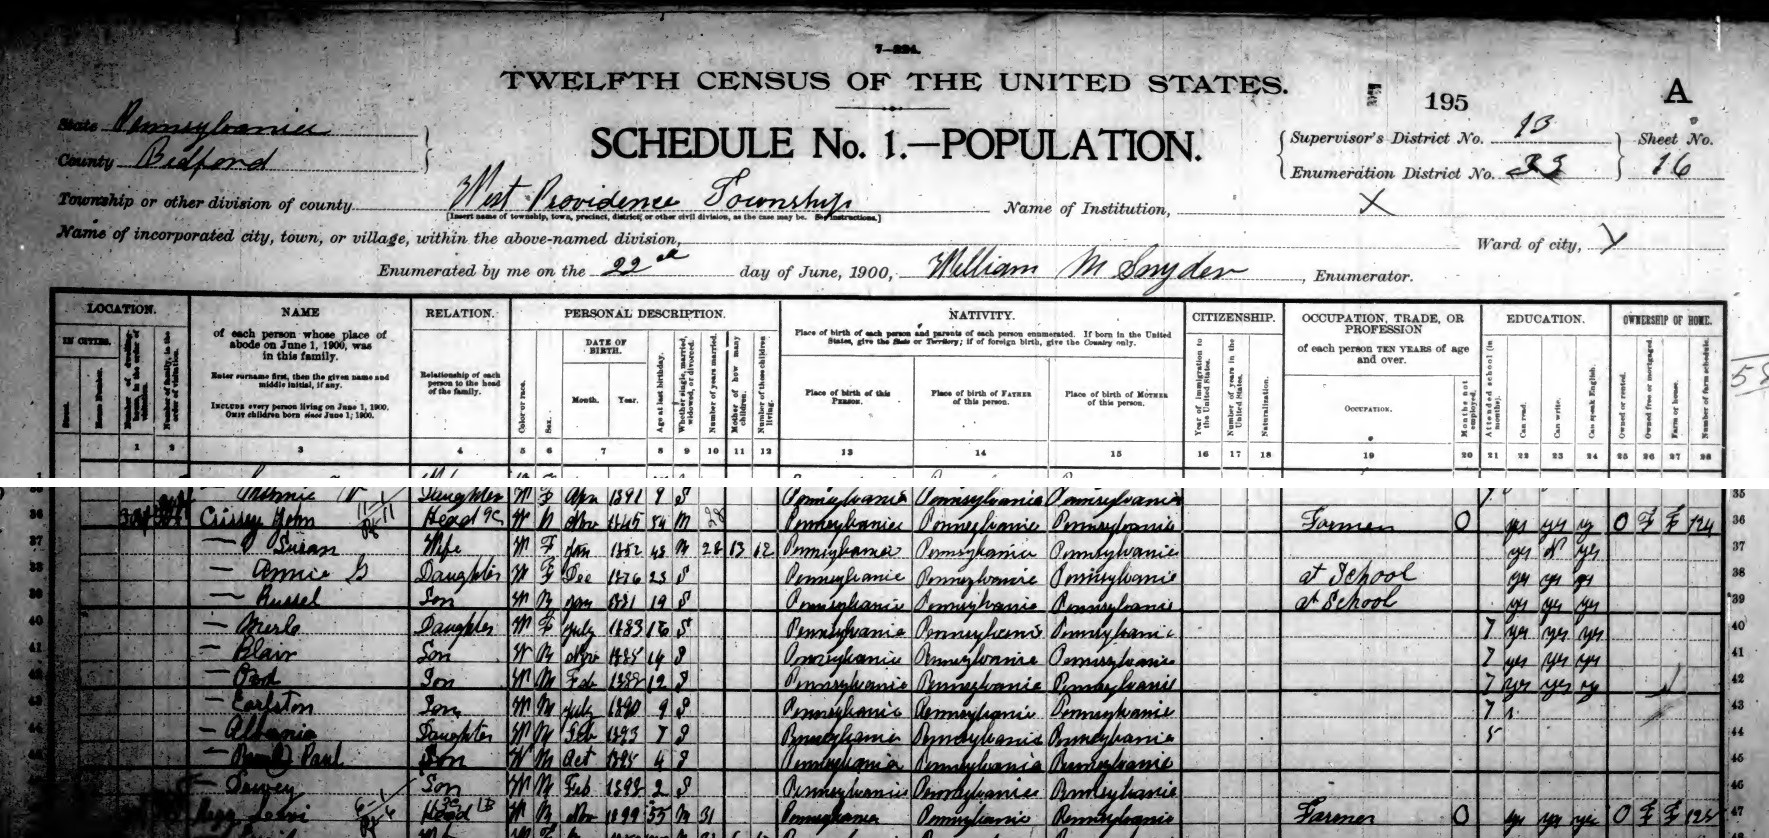 7—224.
TWELFTH CENSUS OF THE UNITED STATES.
195 A
State Pennsylvania
County Bedford
SCHEDULE No. 1.—POPULATION.
Supervisor's District No. 13 Sheet No.
Enumeration District No. 16
Township or other division of county West Providence Township Name of Institution, X
[Insert name of township, town, precinct, district, or other civil division, as the case may be. See instructions.]
Name of incorporated city, town, or village, within the above-named division, Ward of city, X
Enumerated by me on the 22nd day of June, 1900, William M Snyder, Enumerator.
58
LOCATION. NAME RELATION. PERSONAL DESCRIPTION. NATIVITY. CITIZENSHIP. OCCUPATION, TRADE, OR PROFESSION EDUCATION. OWNERSHIP OF HOME.
IN CITIES. Street. House Number. Number of dwelling-house, in the order of visitation. Number of family, in the order of visitation.
of each person whose place of abode on June 1, 1900, was in this family.
Enter surname first, then the given name and middle initial, if any.
INCLUDE every person living on June 1, 1900. OMIT children born since June 1, 1900.
Relationship of each person to the head of the family.
Color or race. Sex. DATE OF BIRTH. Month. Year. Age at last birthday. Whether single, married, widowed, or divorced. Number of years married. Mother of how many children. Number of these children living.
Place of birth of each person and parents of each person enumerated. If born in the United States, give the State or Territory; if of foreign birth, give the Country only.
Place of birth of this PERSON. Place of birth of FATHER of this person. Place of birth of MOTHER of this person.
Year of immigration to the United States. Number of years in the United States. Naturalization.
of each person TEN YEARS of age and over.
OCCUPATION. Months not employed.
Attended school (in months). Can read. Can write. Can speak English.
Owned or rented. Owned free or mortgaged. Farm or house. Number of farm schedule.
1 2 3 4 5 6 7 8 9 10 11 12 13 14 15 16 17 18 19 20 21 22 23 24 25 26 27 28
35 Daughter W F 1891 9 S Pennsylvania Pennsylvania Pennsylvania 35
36 Crissey John Head W M Nov 1845 54 M 28 Pennsylvania Pennsylvania Pennsylvania Farmer O yes yes y O F F 124 36
37 — Susan Wife W F Jan 1852 48 M 28 13 12 Pennsylvania Pennsylvania Pennsylvania yes N yes 37
38 — Annie G Daughter W F Dec 1876 23 S Pennsylvania Pennsylvania Pennsylvania at School yes yes yes 38
39 — Russel Son W M Jan 1881 19 S Pennsylvania Pennsylvania Pennsylvania at School yes yes yes 39
40 — Merle Daughter W F July 1883 16 S Pennsylvania Pennsylvania Pennsylvania 7 yes yes yes 40
41 — Blair Son W M Nov 1885 14 S Pennsylvania Pennsylvania Pennsylvania 7 yes yes yes 41
42 Son W M Feb 1888 12 S Pennsylvania Pennsylvania Pennsylvania 7 yes yes yes 42
43 — Carlston Son W M July 1890 9 S Pennsylvania Pennsylvania Pennsylvania 7 43
44 — Daughter W M Feb 1893 7 S Pennsylvania Pennsylvania Pennsylvania 5 44
45 — Paul Son W M Oct 1895 4 S Pennsylvania Pennsylvania Pennsylvania 45
46 — Dewey Son W M Feb 1898 2 S Pennsylvania Pennsylvania Pennsylvania 46
Levi Head W M Nov 55 M 31 Pennsylvania Pennsylvania Pennsylvania Farmer O yes yes yes O F F 125 47